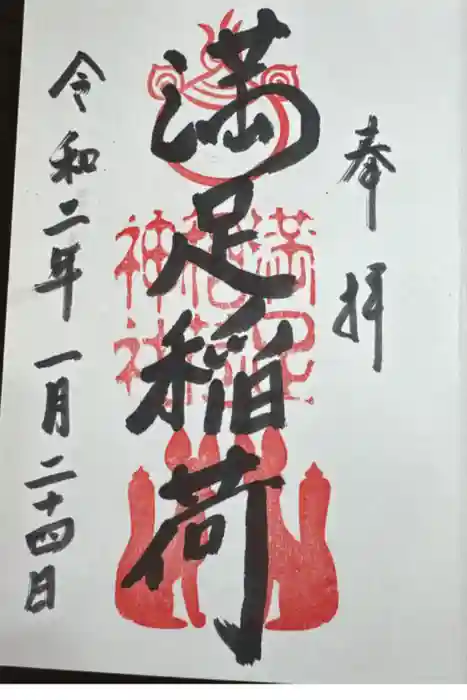 奉拝
満足稲荷
満足
稲荷
神社
令和二年一月二十四日